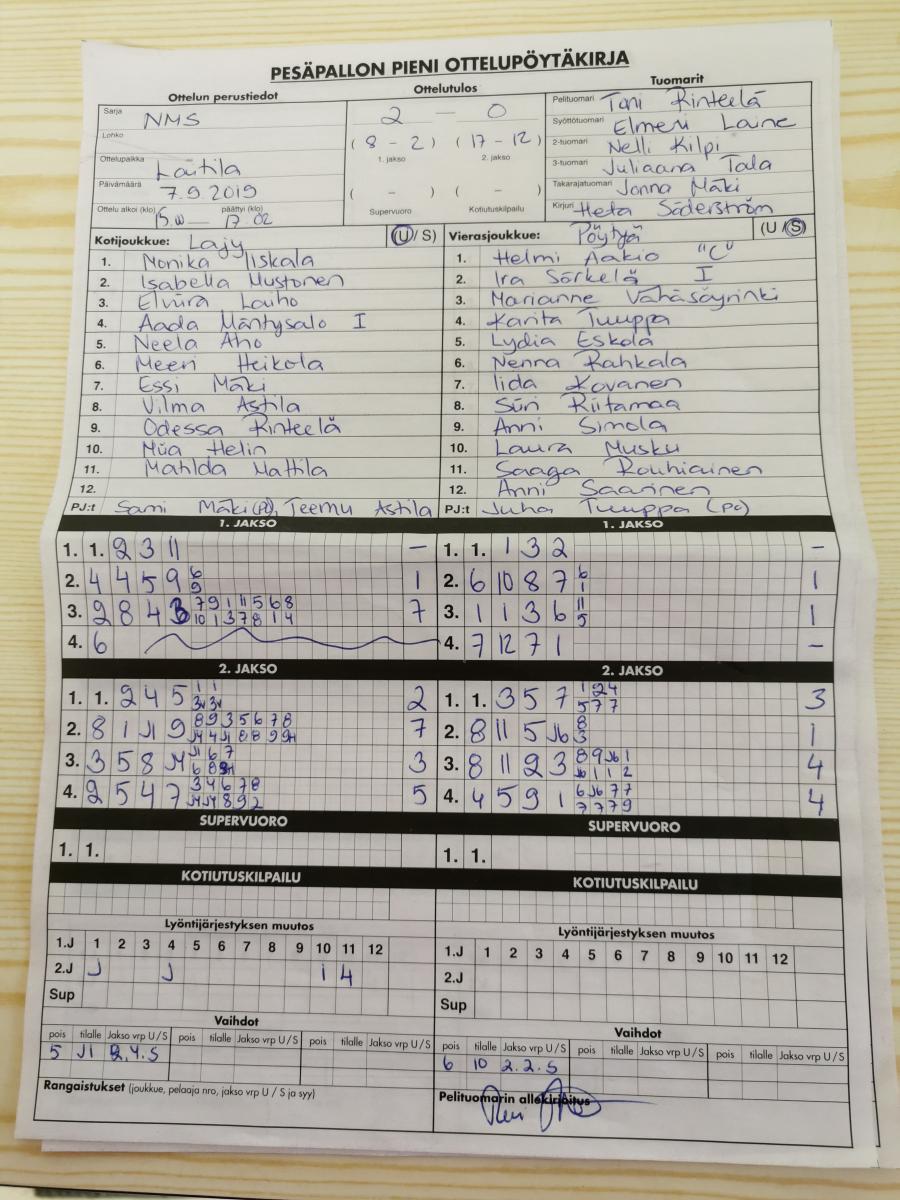 PESÄPALLON PIENI OTTELUPÖYTÄKIRJA
Ottelun perustiedot Ottelutulos Tuomarit
Sarja NMS
Lohko
Ottelupaikka Laitila
Päivämäärä 7.9.2019
Ottelu alkoi (klo) päättyi (klo) 17.02
2 — 0
( 8 - 2 ) ( 17 - 12 )
1. jakso 2. jakso
( - ) ( - )
Supervuoro Kotiutuskilpailu
Pelituomari Toni Rinteelä
Syöttötuomari Elmeri Laine
2-tuomari Nelli Kilpi
3-tuomari Juliaana Tala
Takarajatuomari Jonna Mäki
Kirjuri Heta Söderström
Kotijoukkue: Lajy (U / S)
1. Monika Iiskala
2. Isabella Mustonen
3. Elviira Lauho
4. Aada Mäntysalo I
5. Neela Aho
6. Meeri Heikola
7. Essi Mäki
8. Vilma Astila
9. Odessa Rinteelä
10. Miia Helin
11. Matilda Mattila
12.
PJ:t Sami Mäki (PJ), Teemu Astila
Vierasjoukkue: Pöytyä (U / S)
1. Helmi Aakio "C"
2. Ira Särkelä I
3. Marianne Vähäsöyrinki
4. Karita Tuuppa
5. Lydia Eskola
6. Nenna Rahkala
7. Iida Kovanen
8. Siiri Riitamaa
9. Anni Simola
10. Laura Musku
11. Saaga Rouhiainen
12. Anni Saarinen
PJ:t Juha Tuuppa
1. JAKSO
1. 1. 2 3 11 —
2. 4 4 5 9 6 9 1
3. 2 8 4 3 7 9 1 11 5 6 8 7
10 1 3 7 8 1 4
4. 6
1. JAKSO
1. 1. 1 3 2 —
2. 6 10 8 7 6 1 1
3. 1 1 3 6 11 5 1
4. 7 12 7 1 —
2. JAKSO
1. 1. 2 4 5 1 1 2
2. 8 1 J1 9 8 9 3 5 6 7 8 7
3. 3 5 8 J4 J1 6 7 3
4. 2 5 4 7 3 4 6 7 8 5
J4 J4 8 9 2
2. JAKSO
1. 1. 3 5 7 1 2 4 3
5 7 7
2. 8 11 5 J6 8 1
3
3. 8 11 2 3 8 9 J6 1 4
J6 1 1 2
4. 4 5 9 1 6 J6 7 7 4
7 7 7 9
SUPERVUORO
1. 1.
SUPERVUORO
1. 1.
KOTIUTUSKILPAILU
KOTIUTUSKILPAILU
Lyöntijärjestyksen muutos
1.J 1 2 3 4 5 6 7 8 9 10 11 12
2.J J J 1 4
Sup
Lyöntijärjestyksen muutos
1.J 1 2 3 4 5 6 7 8 9 10 11 12
2.J
Sup
Vaihdot
pois tilalle Jakso vrp U / S pois tilalle Jakso vrp U / S pois tilalle Jakso vrp U / S
5 J1 2.4.S
Vaihdot
pois tilalle Jakso vrp U / S pois tilalle Jakso vrp U / S pois tilalle Jakso vrp U / S
6 10 2.2.S
Rangaistukset (joukkue, pelaaja nro, jakso vrp U / S ja syy)
Pelituomarin allekirjoitus